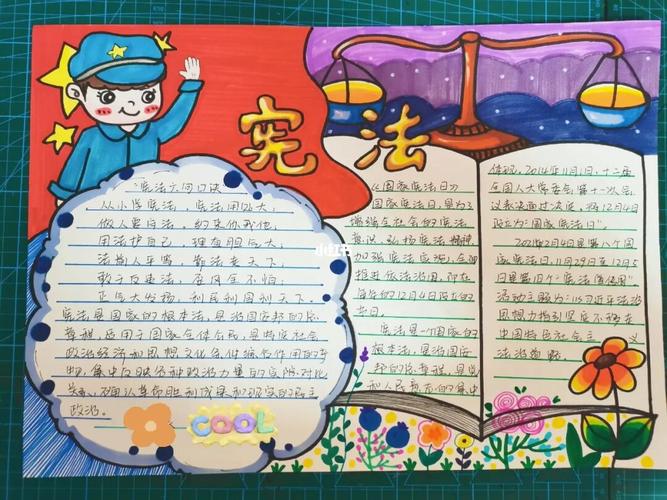 宪法
宪法六句口诀
从小学宪法，宪法用处大；
做人要 法，约束你我他，
用法护自己，理直胆气大；
法 人平等， 法走天下，
敢于反违法， 全不怕；
正气大发扬，利民利国利天下。
宪法是国家的根本法，是治国安邦的总
章程，适用于国家全体公民，是特定社会
政治经济和思想文化条件综合作用的产
物，集中反映各种政治力量的实际对比
关系，确认革命胜利成果和现实的民主
政治。
COOL
《国家宪法日》
国家宪法日，是为了
增强全社会的宪法
意识，弘扬宪法精神，
加强宪法实施，全面
推进依法治国，而在
每年的12月4日设立的
节日。
宪法是一个国家的
根本法，是治国安
邦的总章程，是党
和人民意志的集中
体现，2014年11月1日，十二届
全国人大常委会第十一次会
议表决通过决定，将12月4日
设立为"国家宪法日"。
2021年 月4日是第八个国
家宪法日，11月29日至12月5
日是第四个"宪法宣传周"
活动主题为：以习近平法治
思想为指引坚定不移走
中国特色社会主义
法治道路.
小红书